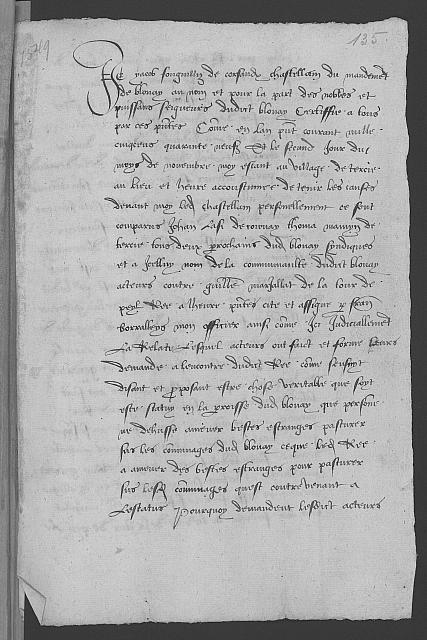 135
Je yacob fonguillin de corsand chastellain du mandemet
de blonay au nom et pour la part des nobles et
puissans seigneurs dudict blonay Certiffie a tous
par ces pntes Come en lan pnt courant mille
cinqcens quarante neufz Et le second jour du
moys de novembre moy estant au village de tercie
au lieu et heure accoustumee de tenir les causes
devant moy led chastellain personellement ce sont
comparus Johan thoma mamyn de
tercie tous deux prochains dud blonay syndiques
et a Icelluy nom de la communaulte dudict blonay
acteurs contre guille marjollat de la tour de
peyl Ree a lheure pntes cite et assigne p Jean
borralleys mon officier ansi come Icy Judiciallemet
La Relate Lesquelz acteurs ont faict et forme leurs
demande a lencontre dudict Ree come sensuyt
disant et proposant estre chose veritable que soyt
este statuy en la proisse dud blonay que persone
ne dehusse amener bestes estranges pasturer
sus les commnages dud blonay ce que led Ree
a amener des bestes estranges pour pasturer
sus lesd commnages quest contrevenant a
Lestatus Pourquoy demandent lesdict acteurs